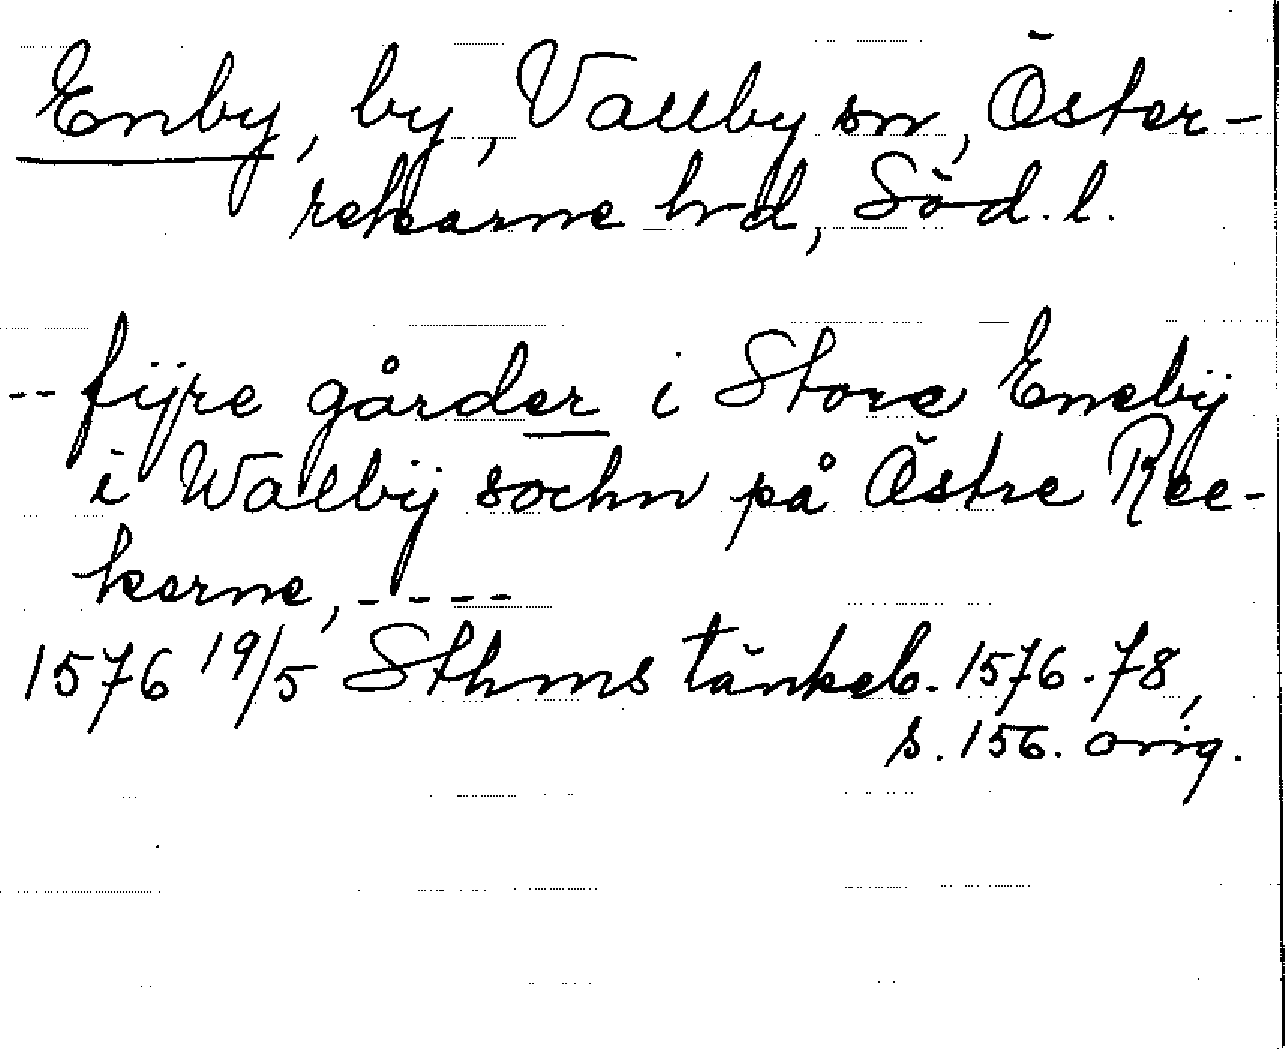 Enby, by, Vallby sn, Öster-
rekarne hrd, Söd. l.
-- fÿre gårder i Store Enebÿ
i Walbÿ sochn på Östre Ree-
kerne, - - - -
1576 19/5 Sthms tänkeb. 1576-78,
s. 156. orig.